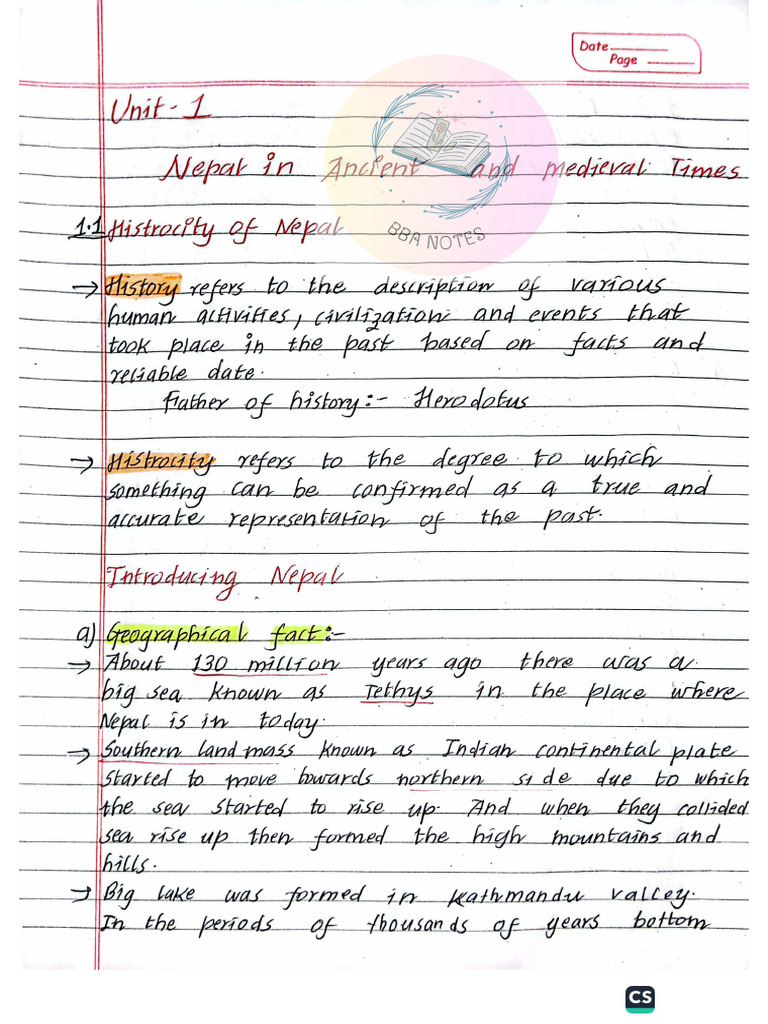 Date
Page
Unit-1
Nepal in Ancient and medieval Times
BBA NOTES
1.1 Histrocity of Nepal
→ History refers to the description of various
human activities, civilization and events that
took place in the past based on facts and
reliable date.
Father of history:- Herodotus
→ Histrocity refers to the degree to which
something can be confirmed as a true and
accurate representation of the past.
Introducing Nepal
a) Geographical fact:-
→ About 130 million years ago there was a
big sea known as Tethys in the place where
Nepal is in today.
→ Southern landmass known as Indian continental plate
started to move towards northern side due to which
the sea started to rise up. And when they collided
sea rise up then formed the high mountains and
hills.
→ Big lake was formed in Kathmandu valley.
In the periods of thousands of years bottom
CS